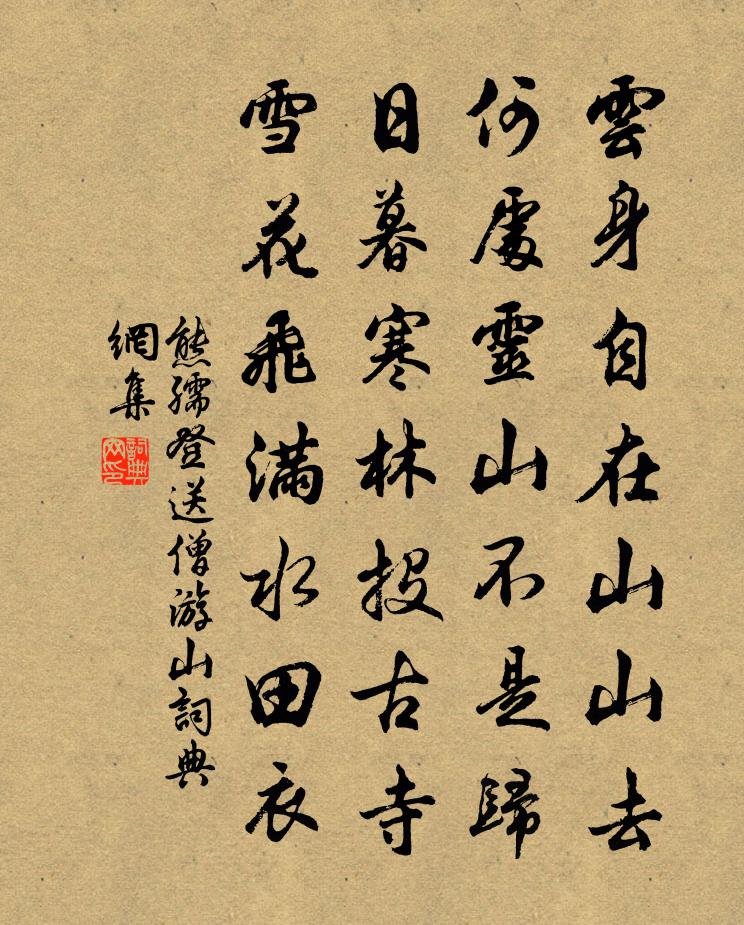 雲身自在山山去
何處靈山不是歸
日暮寒林投古寺
雪花飛滿水田衣
熊孺登送僧游山詞典
網集
詞典
网印